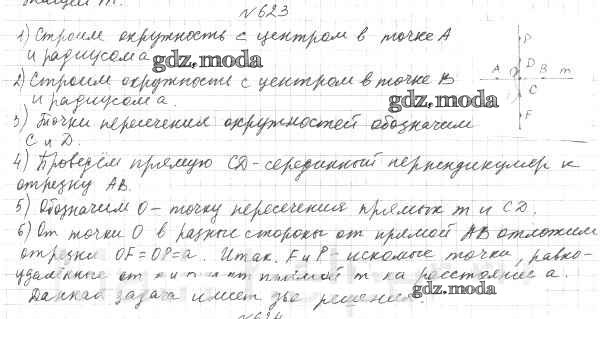 №623
1) Строим окружность с центром в точке А
и радиусом а
gdz.moda
2) Строим окружность с центром в точке В
и радиусом а.
gdz.moda
3) Точки пересечения окружностей обозначим
С и D.
4) Проведём прямую CD - серединный перпендикуляр к
отрезку АВ.
5) Обозначим О - точку пересечения прямых m и CD.
6) От точки О в разные стороны от прямой АВ отложим
отрезки OF = OP = a. Итак, F и P искомые точки, равно-
удалённые от прямой m на расстояние а.
Данная задача имеет две решения.
gdz.moda
P
D
A O B m
C
F